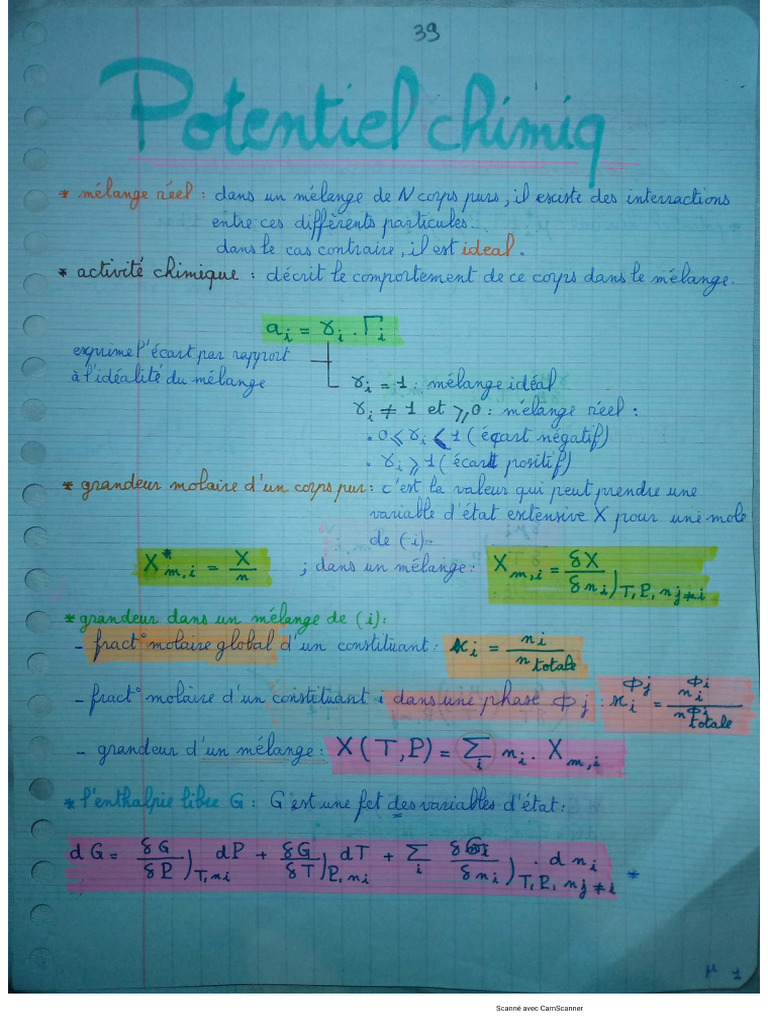 39
Potentiel chimiq
* mélange réel : dans un mélange de N corps purs, il existe des interractions
entre ces différents particules.
dans le cas contraire, il est ideal.
* activité chimique : décrit le comportement de ce corps dans le mélange.
ai = γi . Γi
exprime l'écart par rapport
à l'idéalité du mélange
γi = 1 : mélange idéal
γi ≠ 1 et ⩾ 0 : mélange réel :
. 0 ⩽ γi < 1 (écart négatif)
. γi ⩾ 1 (écart positif)
* grandeur molaire d'un corps pur : c'est la valeur qui peut prendre une
variable d'état extensive X pour une mole
de (i).
X*m,i = X/n ; dans un mélange : Xm,i = δX/δni)T,P,nj≠i
* grandeur dans un mélange de (i):
- fract° molaire global d'un constituant : xi = ni/n totale
- fract° molaire d'un constituant i dans une phase ϕj : xi^ϕj = ni^ϕi/n^ϕi totale
- grandeur d'un mélange : X(T,P) = Σi ni . Xm,i
* l'enthalpie libre G : G est une fct des variables d'état :
dG = δG/δP)T,ni dP + δG/δT)P,ni dT + Σi δGi/δni)T,P,nj≠i . dni *
μ 1
Scanné avec CamScanner